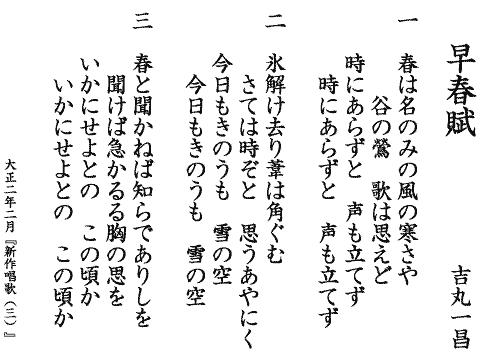 早春賦
吉丸一昌
一 春は名のみの風の寒さや
谷の鶯 歌は思えど
時にあらずと 声も立てず
時にあらずと 声も立てず
二 氷解け去り葦は角ぐむ
さては時ぞと 思うあやにく
今日もきのうも 雪の空
今日もきのうも 雪の空
三 春と聞かねば知らでありしを
聞けば急かるる胸の思を
いかにせよとの この頃か
いかにせよとの この頃か
大正二年二月『新作唱歌(三)』